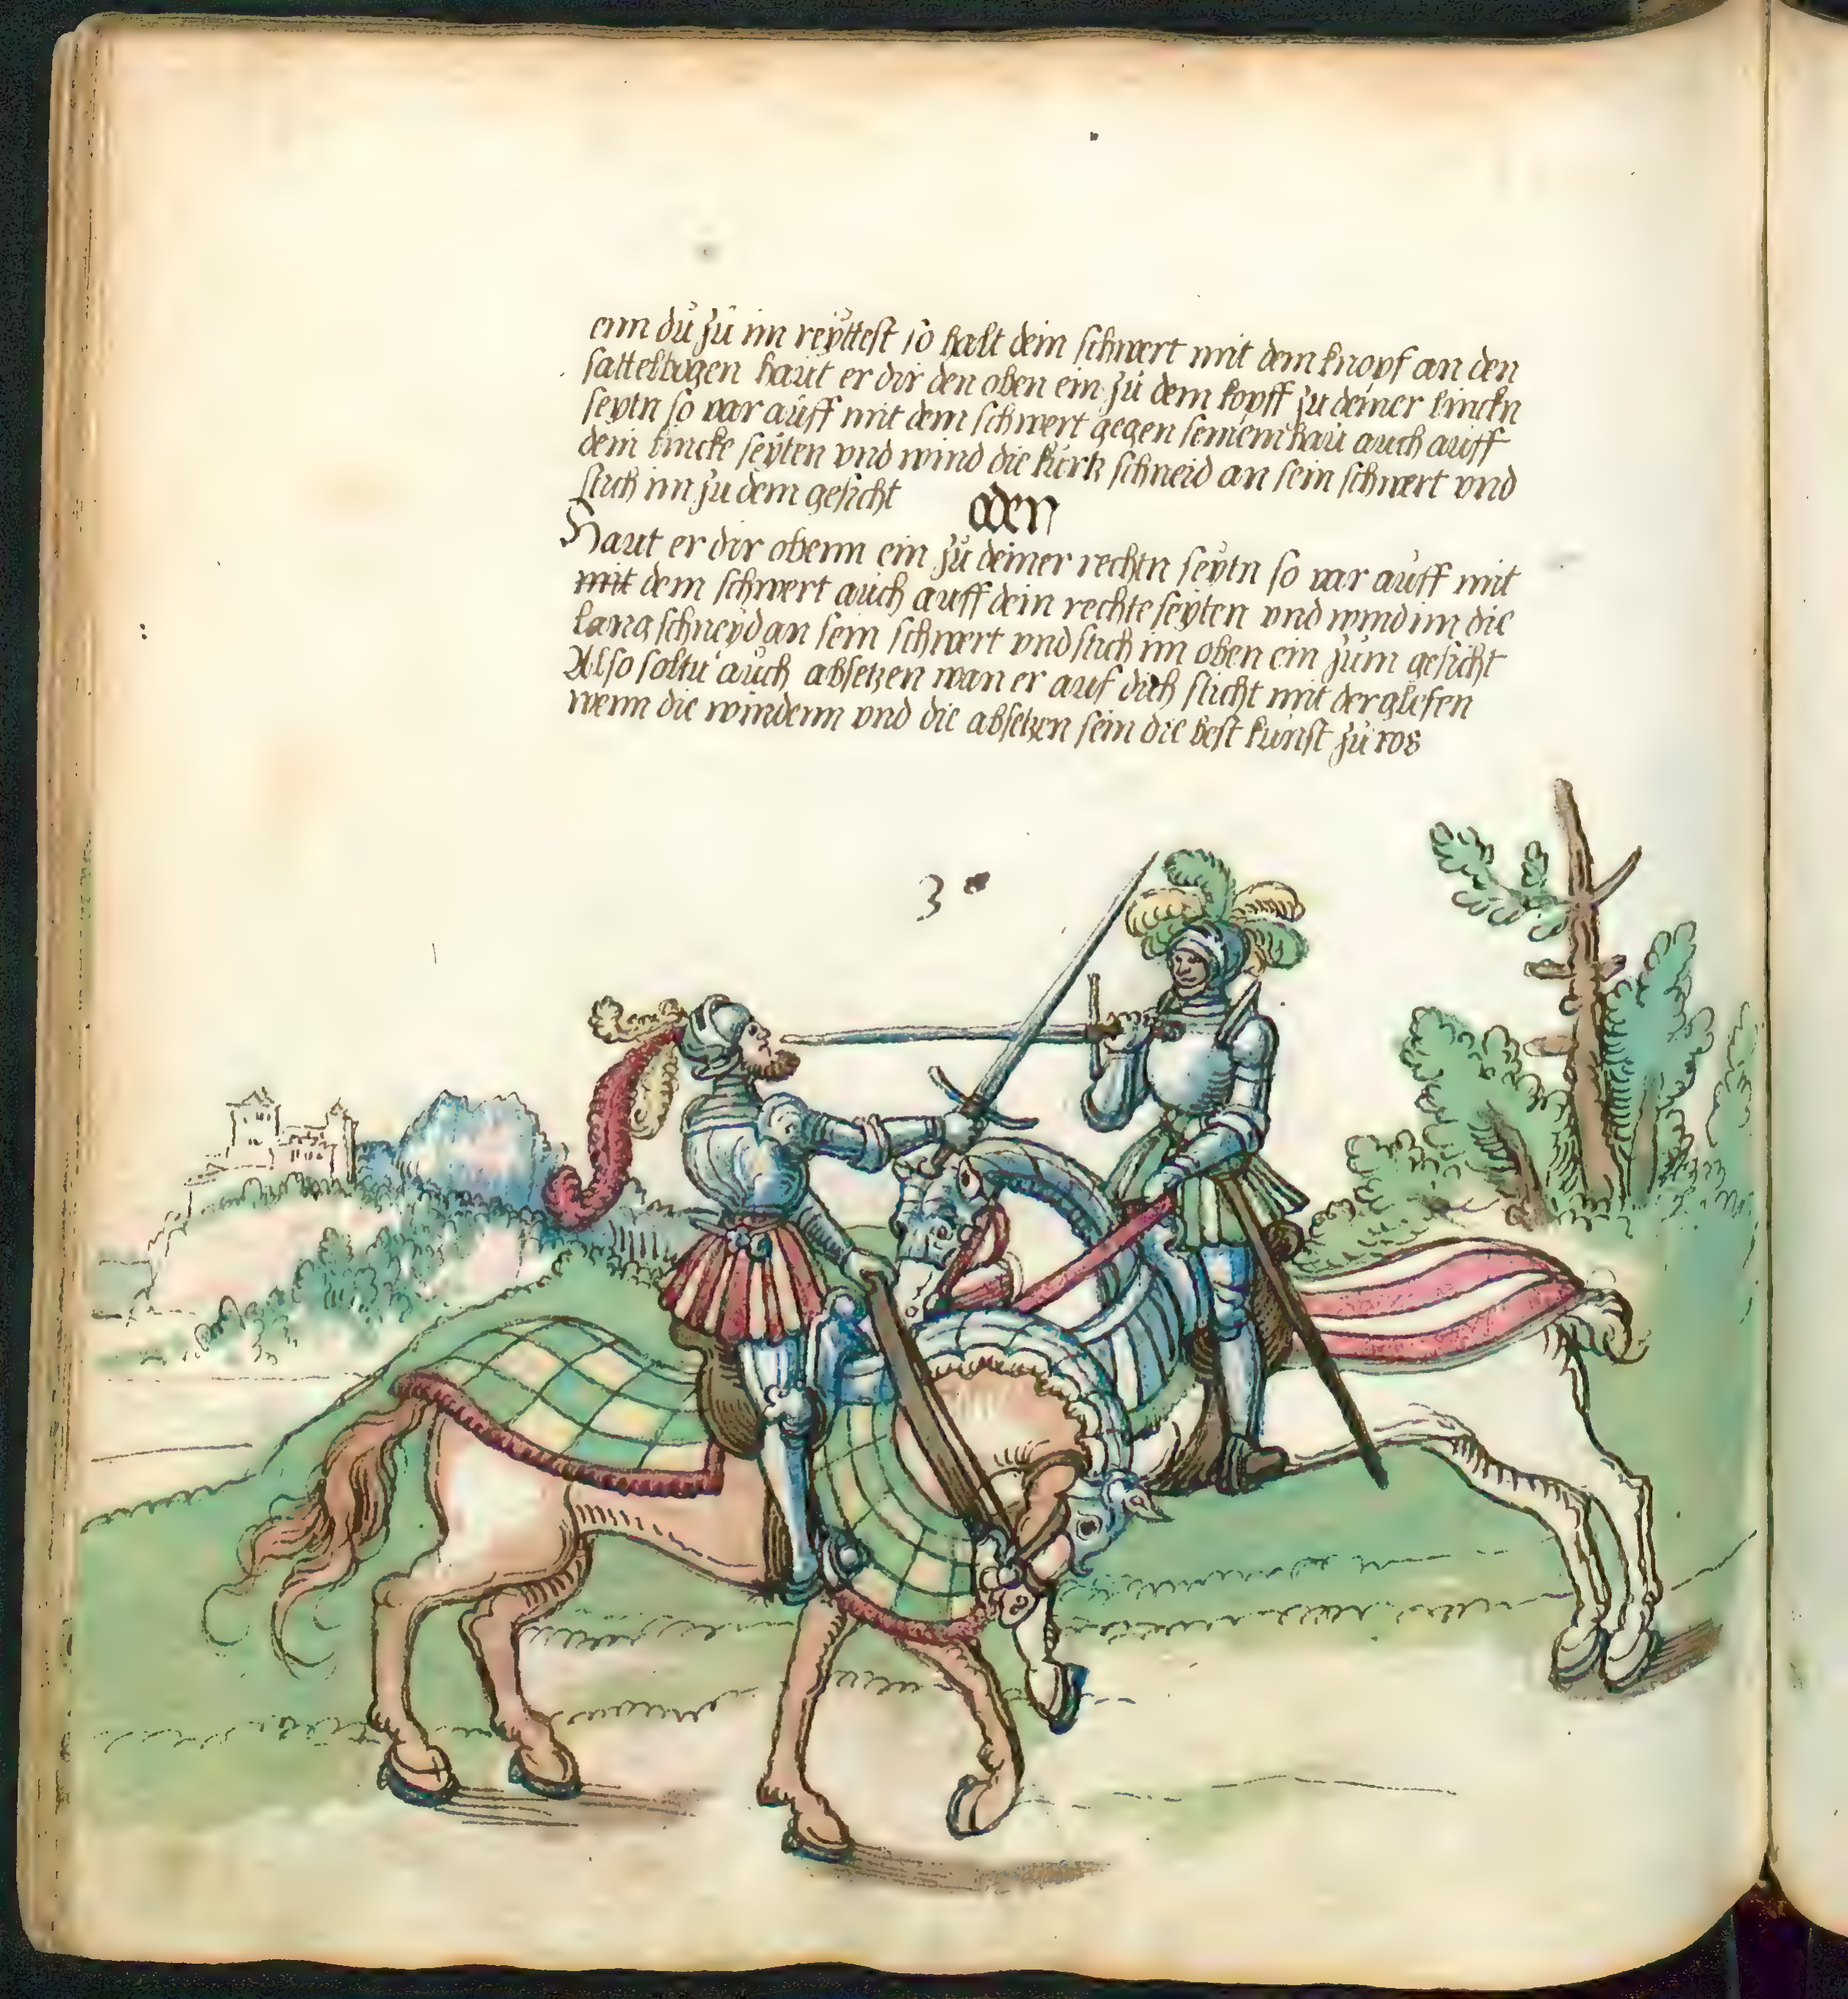 enn dü zü im reÿttest so halt dein schwert mit dem knopf an den
sattelbogen haüt er dir den oben ein zü dem kopff zu deiner linckn
seytn so var aüff mit dem schwert gegen seinem haü auch auff
dein lincke seÿten vnd wind die kürtz schneid an sein schwert vnd
stich im zu dem gesicht oder
Haut er dir obenn ein zü deiner rechtn seÿtn so var aüff mit
mit dem schwert aüch auff dein rechte seÿten vnd wind im die
lang schneÿd an sein schwert vnd stich im oben ein züm gesicht
Also soltu aüch absetzen wan er auf dich sticht mit der glefen
wenn die windenn vnd die absetzen sein die best künst zü ros
3